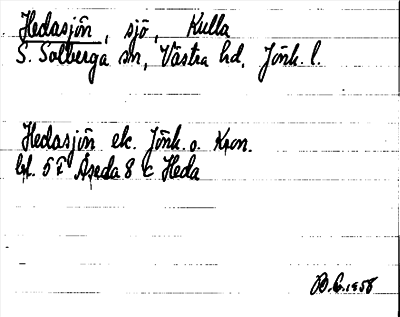 Hedasjön, sjö, Kulla
S. Solberga sn, Västra hd, Jönk. l.
Hedasjön ek. Jönk. o. Kron.
bl. 5 F Åseda 8 c Heda
1958